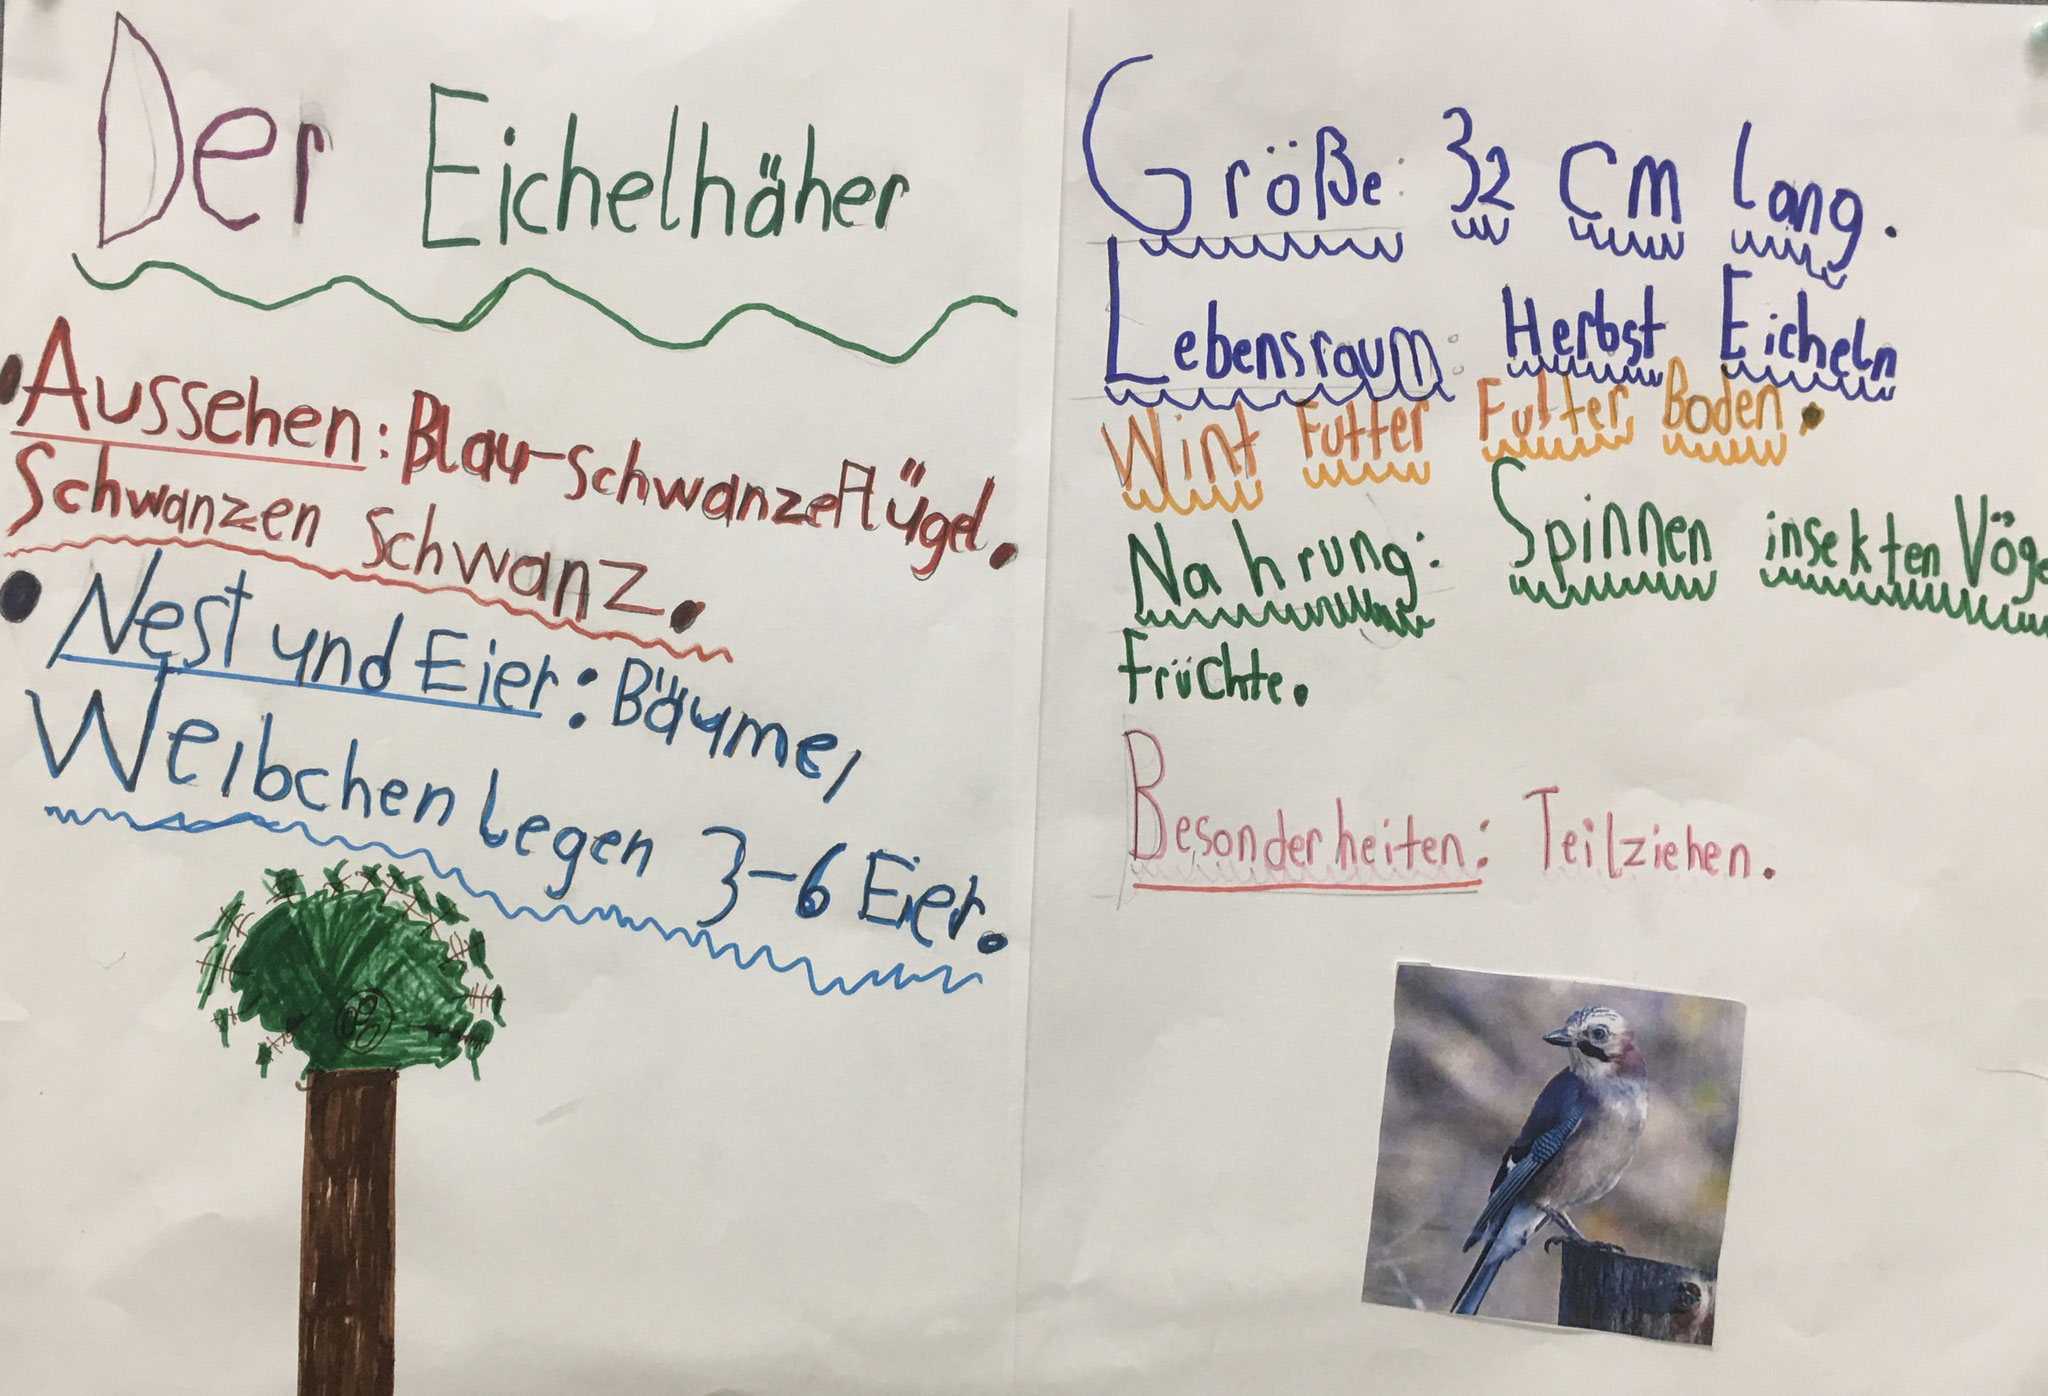 Der Eichelhäher
Aussehen: Blau-schwanzeflügel.
Schwanzen Schwanz.
Nest und Eier: Bäume,
Weibchen legen 3-6 Eier.
Größe: 32 cm lang.
Lebensraum: Herbst Eicheln
Wint Futter Futter Boden.
Nahrung: Spinnen insekten Vöge
Früchte.
Besonderheiten: Teilziehen.